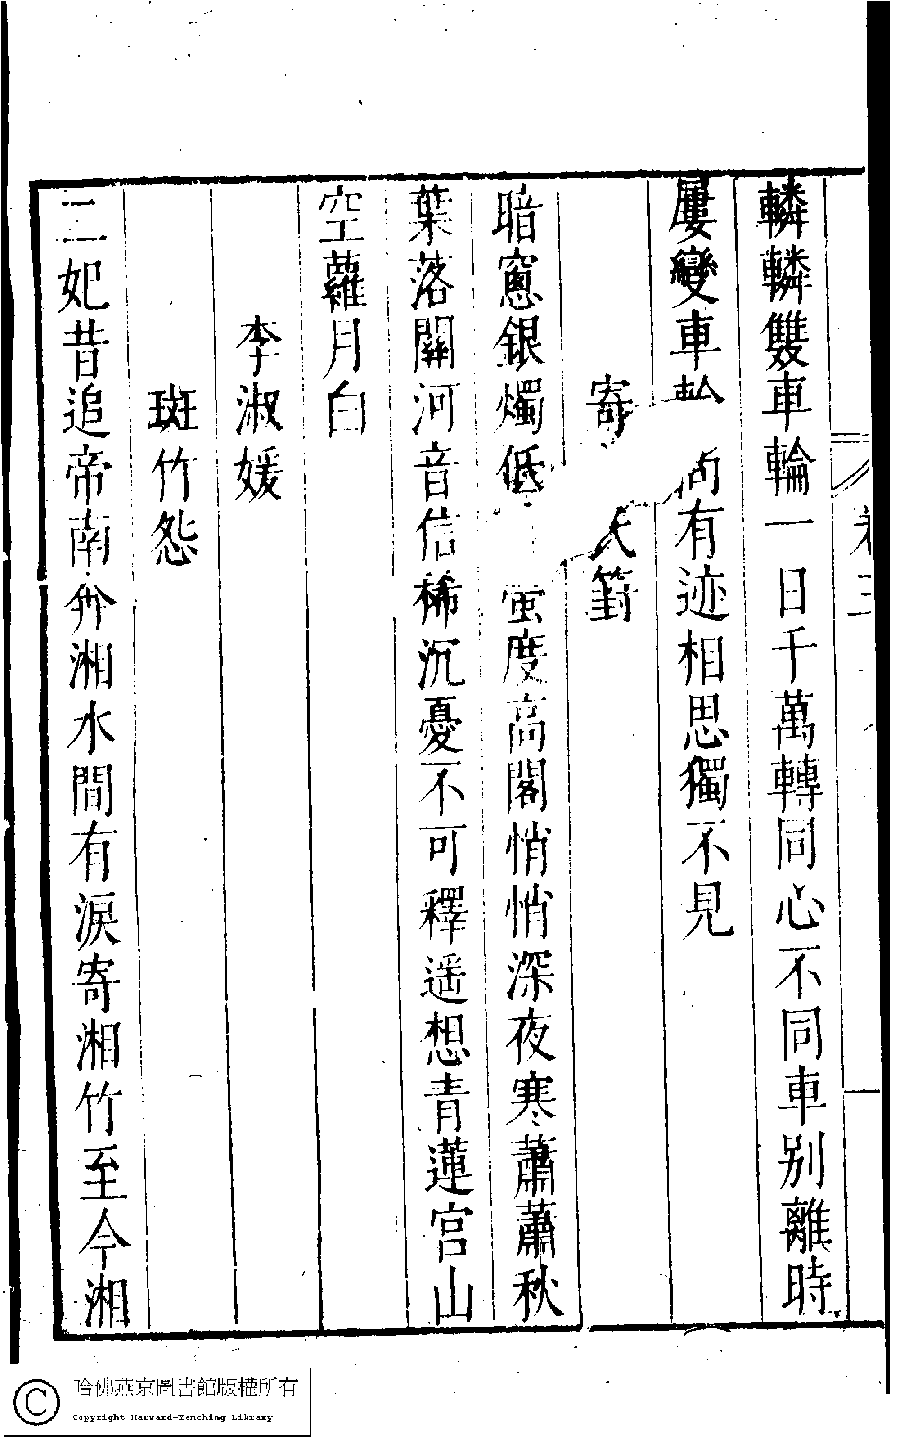 轔轔雙車輪一日千萬轉同心不同車别離時
屢變車尚有迹相思獨不見
寄天簥
暗窻銀燭低螢度高閣悄悄深夜寒蕭蕭秋
葉落關河音信稀沉憂不可釋遥想青蓮宫山
空蘿月白
李淑媛
斑竹怨
二妃昔追帝南奔湘水間有淚寄湘竹至今湘
哈佛燕京圖書館版權所有
Copyright Harvard-Yenching Library